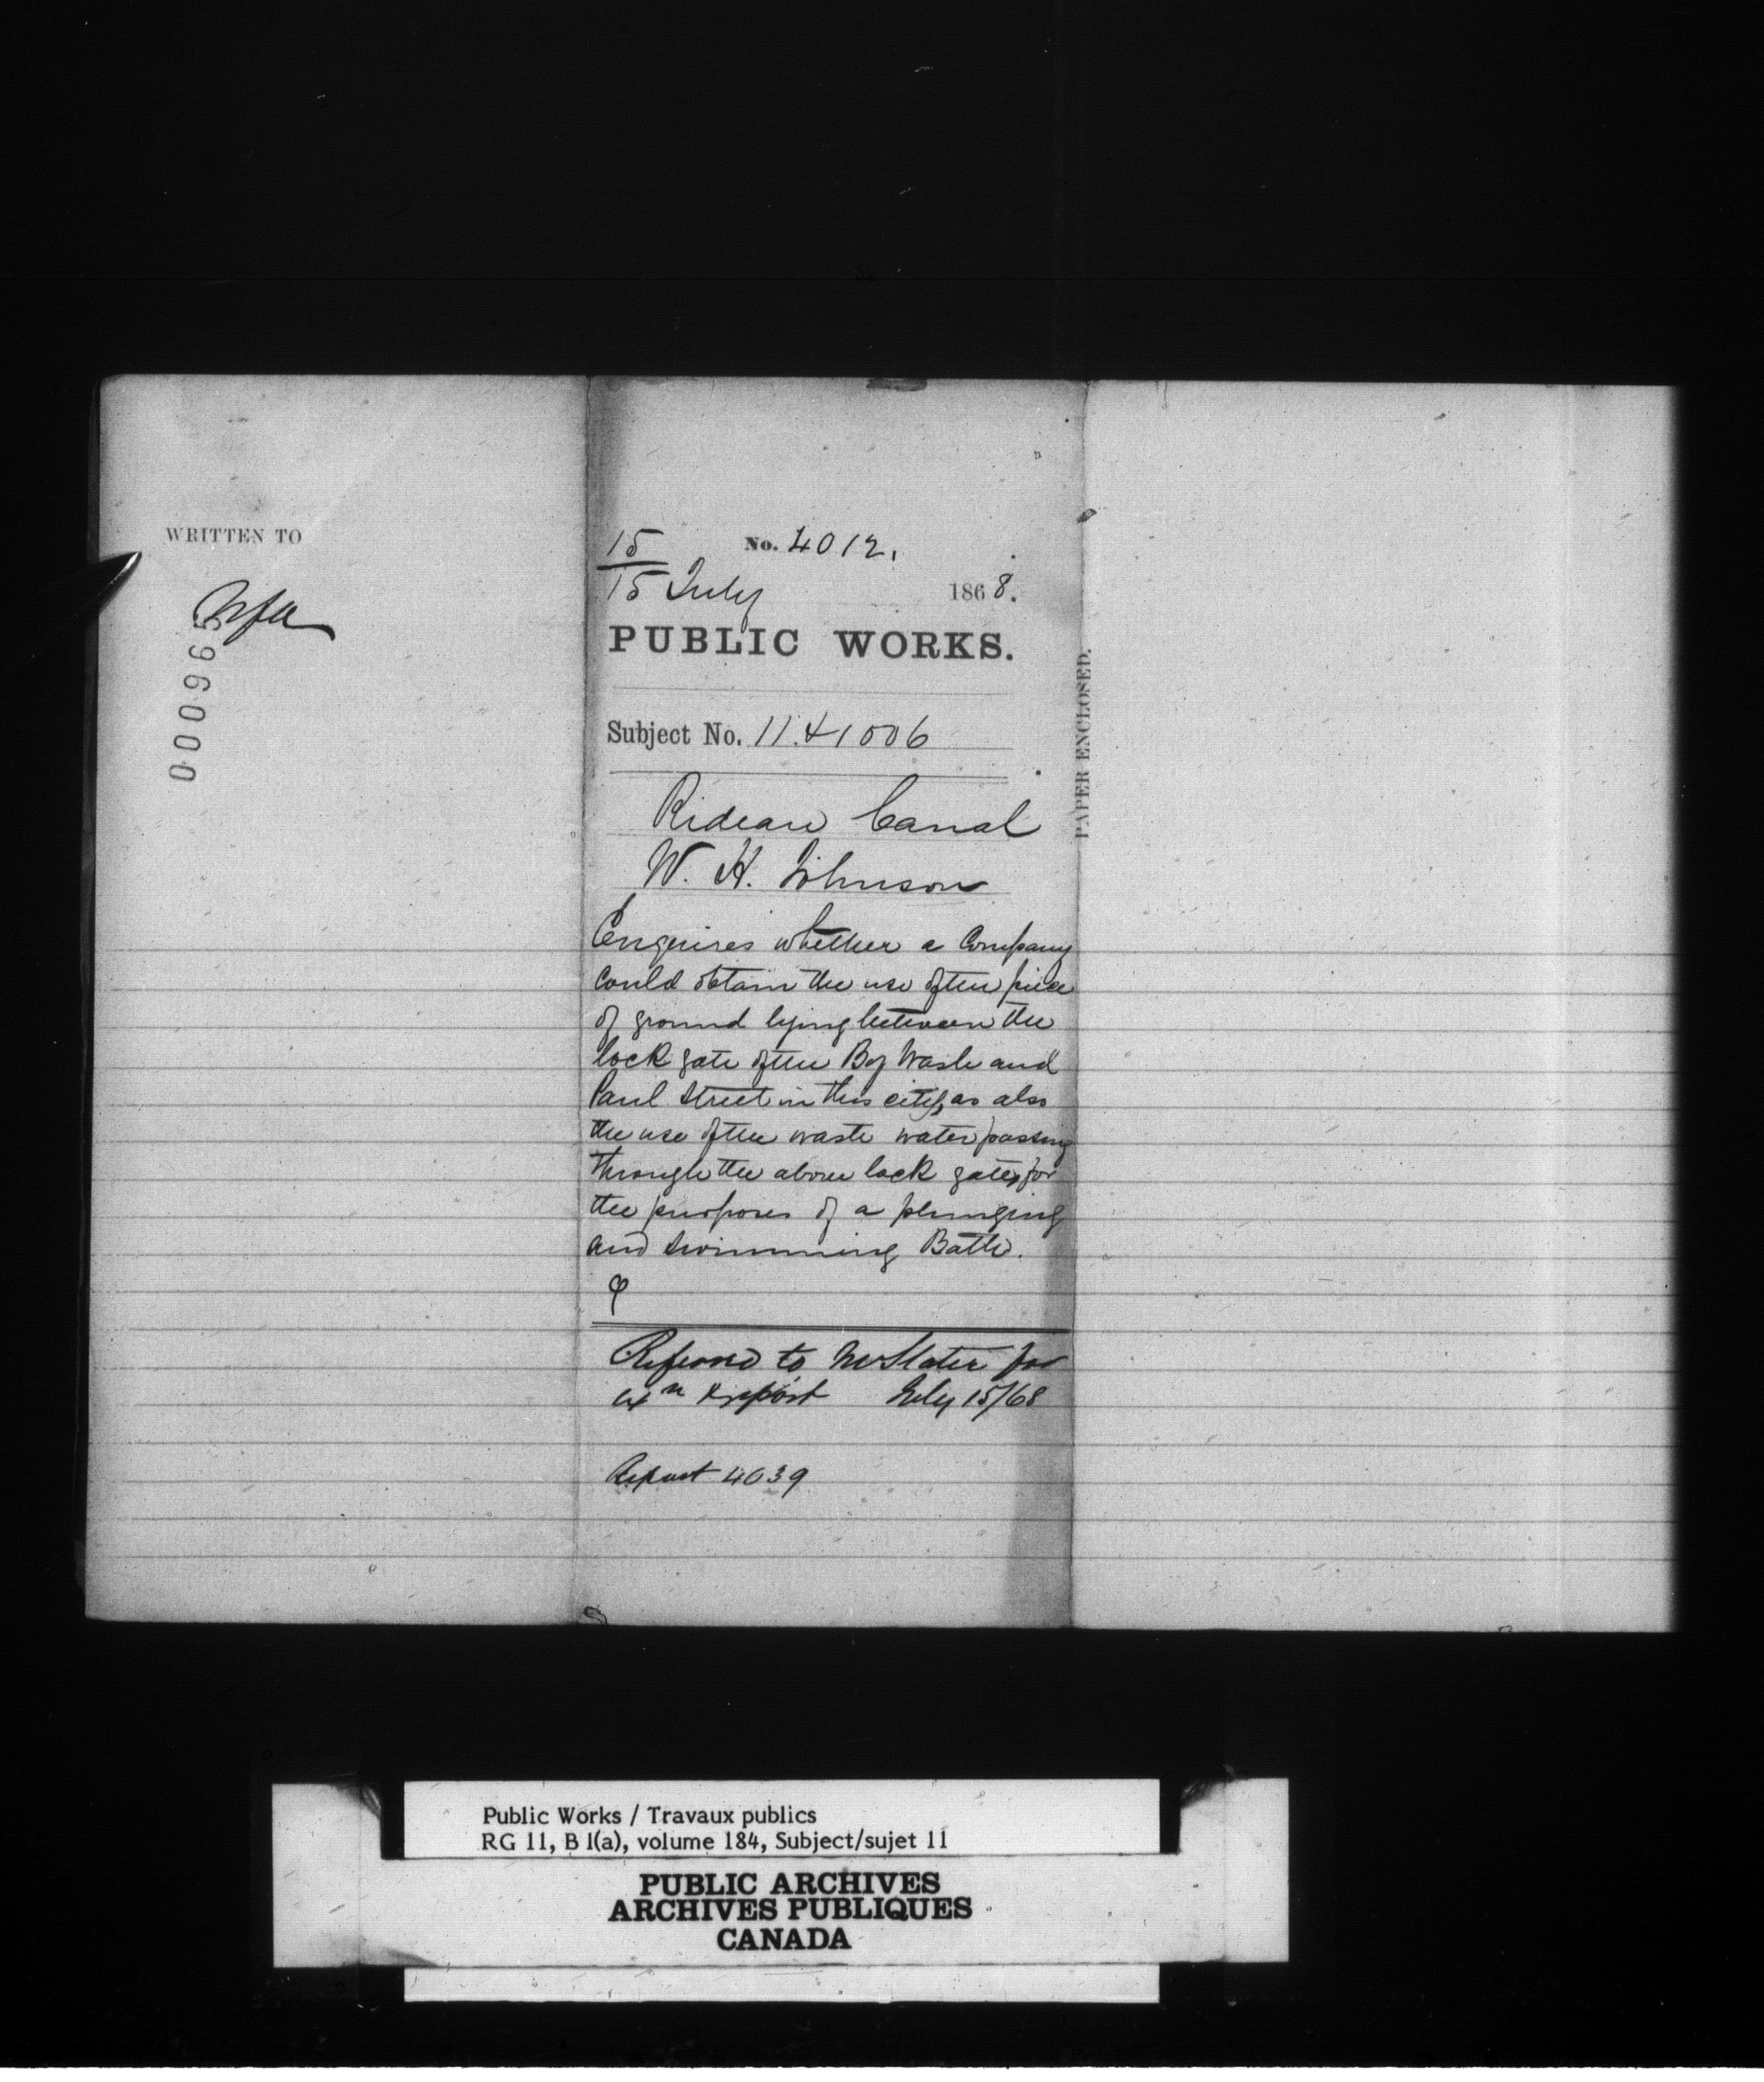 WRITTEN TO
000965
15
15 July 1868.
No. 4012.
PUBLIC WORKS.
Subject No. 11.&1006
Rideau Canal
W. H. Johnson
Enquires whether a Company
could obtain the use of the piece
of ground lying between the
lock gate of the By Wash and
Paul Street in this city, as also
the use of the waste water passing
through the above lock gates, for
the purposes of a plunging
and swimming Bath.
Referred to Mr Slater for
exn & report July 15/68
Report 4039
PAPER ENCLOSED.
Public Works / Travaux publics
RG 11, B 1(a), volume 184, Subject/sujet 11
PUBLIC ARCHIVES
ARCHIVES PUBLIQUES
CANADA